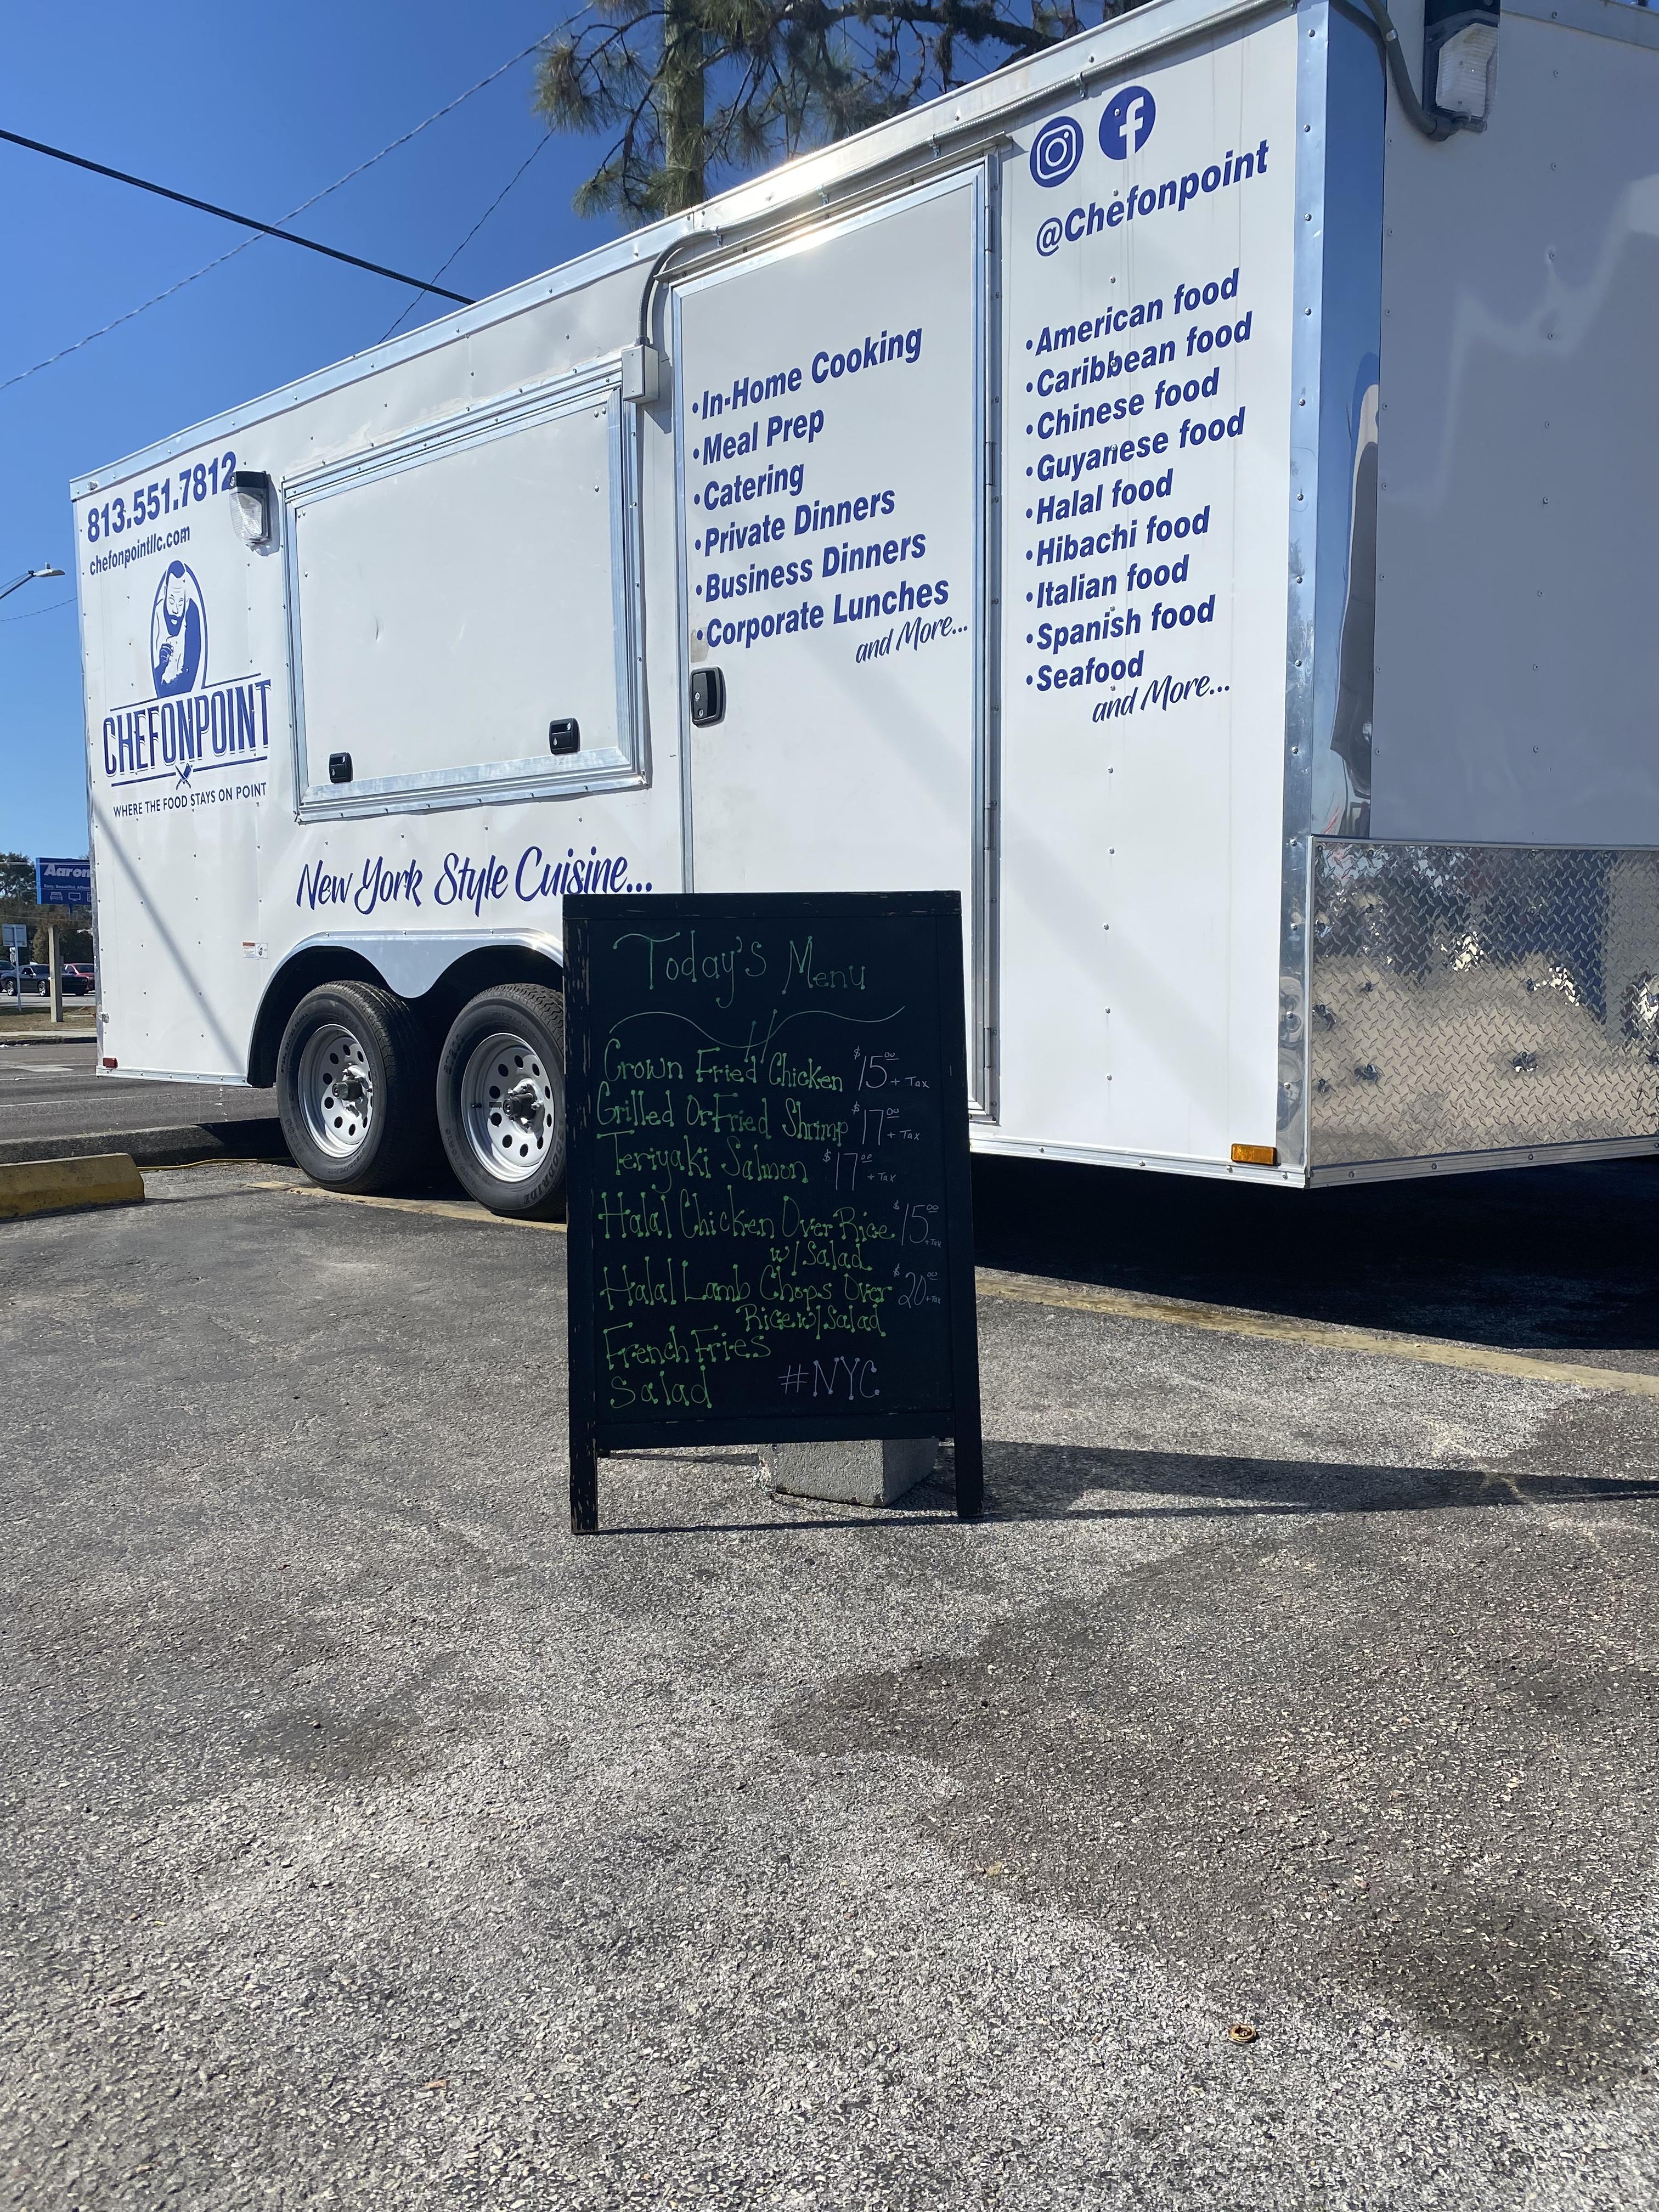 813.551.7812
chefonpointllc.com
CHEFONPOINT
WHERE THE FOOD STAYS ON POINT
New York Style Cuisine...
•In-Home Cooking
•Meal Prep
•Catering
•Private Dinners
•Business Dinners
•Corporate Lunches
and More...
@Chefonpoint
•American food
•Caribbean food
•Chinese food
•Guyanese food
•Halal food
•Hibachi food
•Italian food
•Spanish food
•Seafood
and More...
Aaron
Today's Menu
Crown Fried Chicken $15.00 + Tax
Grilled Or Fried Shrimp $17.00 + Tax
Teriyaki Salmon $17.00 + Tax
Halal Chicken Over Rice $15.00 + Tax
w/ Salad
Halal Lamb Chops Over $20.00 + Tax
Rice w/ Salad
French Fries
Salad #NYC